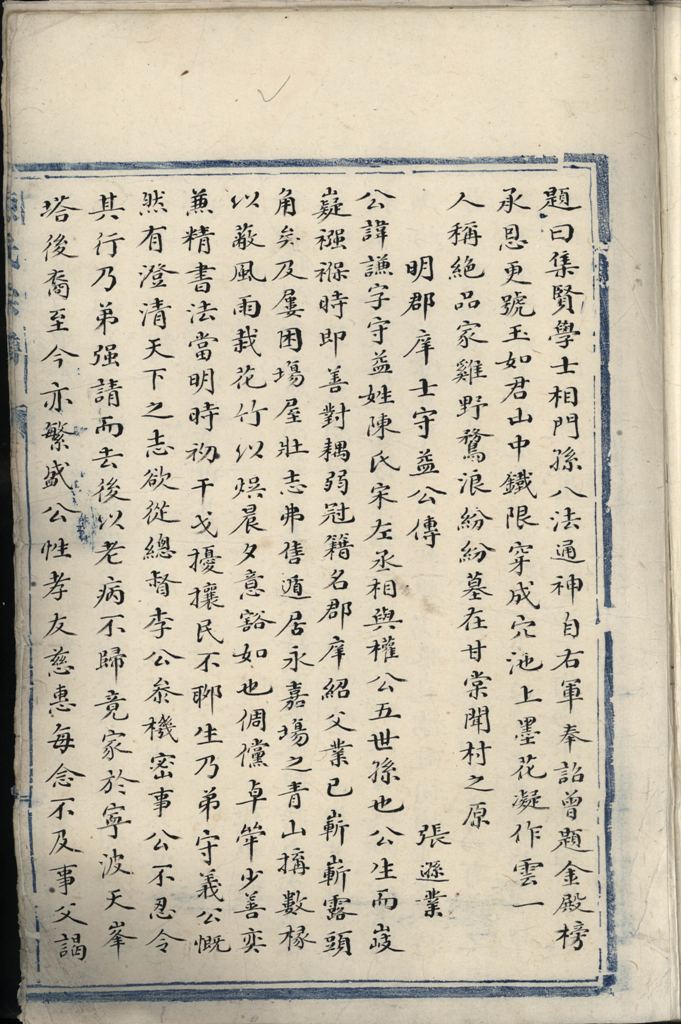 題曰集賢學士相門孫八法通神自右軍奉詔曾題金殿榜
承恩更號玉如君山中鐵限穿成穴池上墨花凝作雲一
人稱絶品家雞野鶩浪紛紛墓在甘棠聞村之原
明郡庠士守益公傳
張遜業
公諱謙字守益姓陳氏宋左丞相與權公五世孫也公生而岐
嶷襁褓時即善對耦弱冠籍名郡庠紹父業已嶄嶄露頭
角矣及屢困塲屋壯志弗售遁居永嘉塲之青山搆數椽
以蔽風雨栽花竹以娯晨夕意豁如也倜儻卓犖少善奕
兼精書法當明時初干戈擾攘民不聊生乃弟守義公慨
然有澄清天下之志欲從總督李公叅機密事公不忍令
其行乃弟强請而去後以老病不歸竟家於寧波天峯
塔後裔至今亦繁盛公性孝友慈惠每念不及事父謁